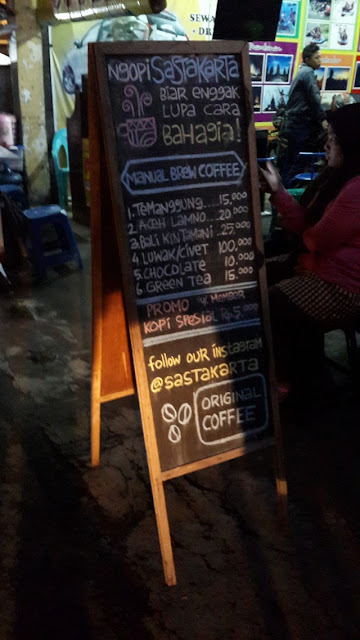 SEWA
NGOPI SASTAKARTA
BIAR ENGGAK
LUPA CARA
BAHAGIA!
MANUAL BREW COFFEE
1. TEMANGGUNG....15,000
2. ACEH LAMNO...20,000
3. BALI KINTAMANI.25,000
4. LUWAK/CIVET 100,000
5. CHOCOLATE 10,000
6 GREEN TEA 15.000
PROMO
KOPI SPESIAL Rp.5,000
follow OUR inStagram
@SASTAKARTA
ORIGINAL
COFFEE